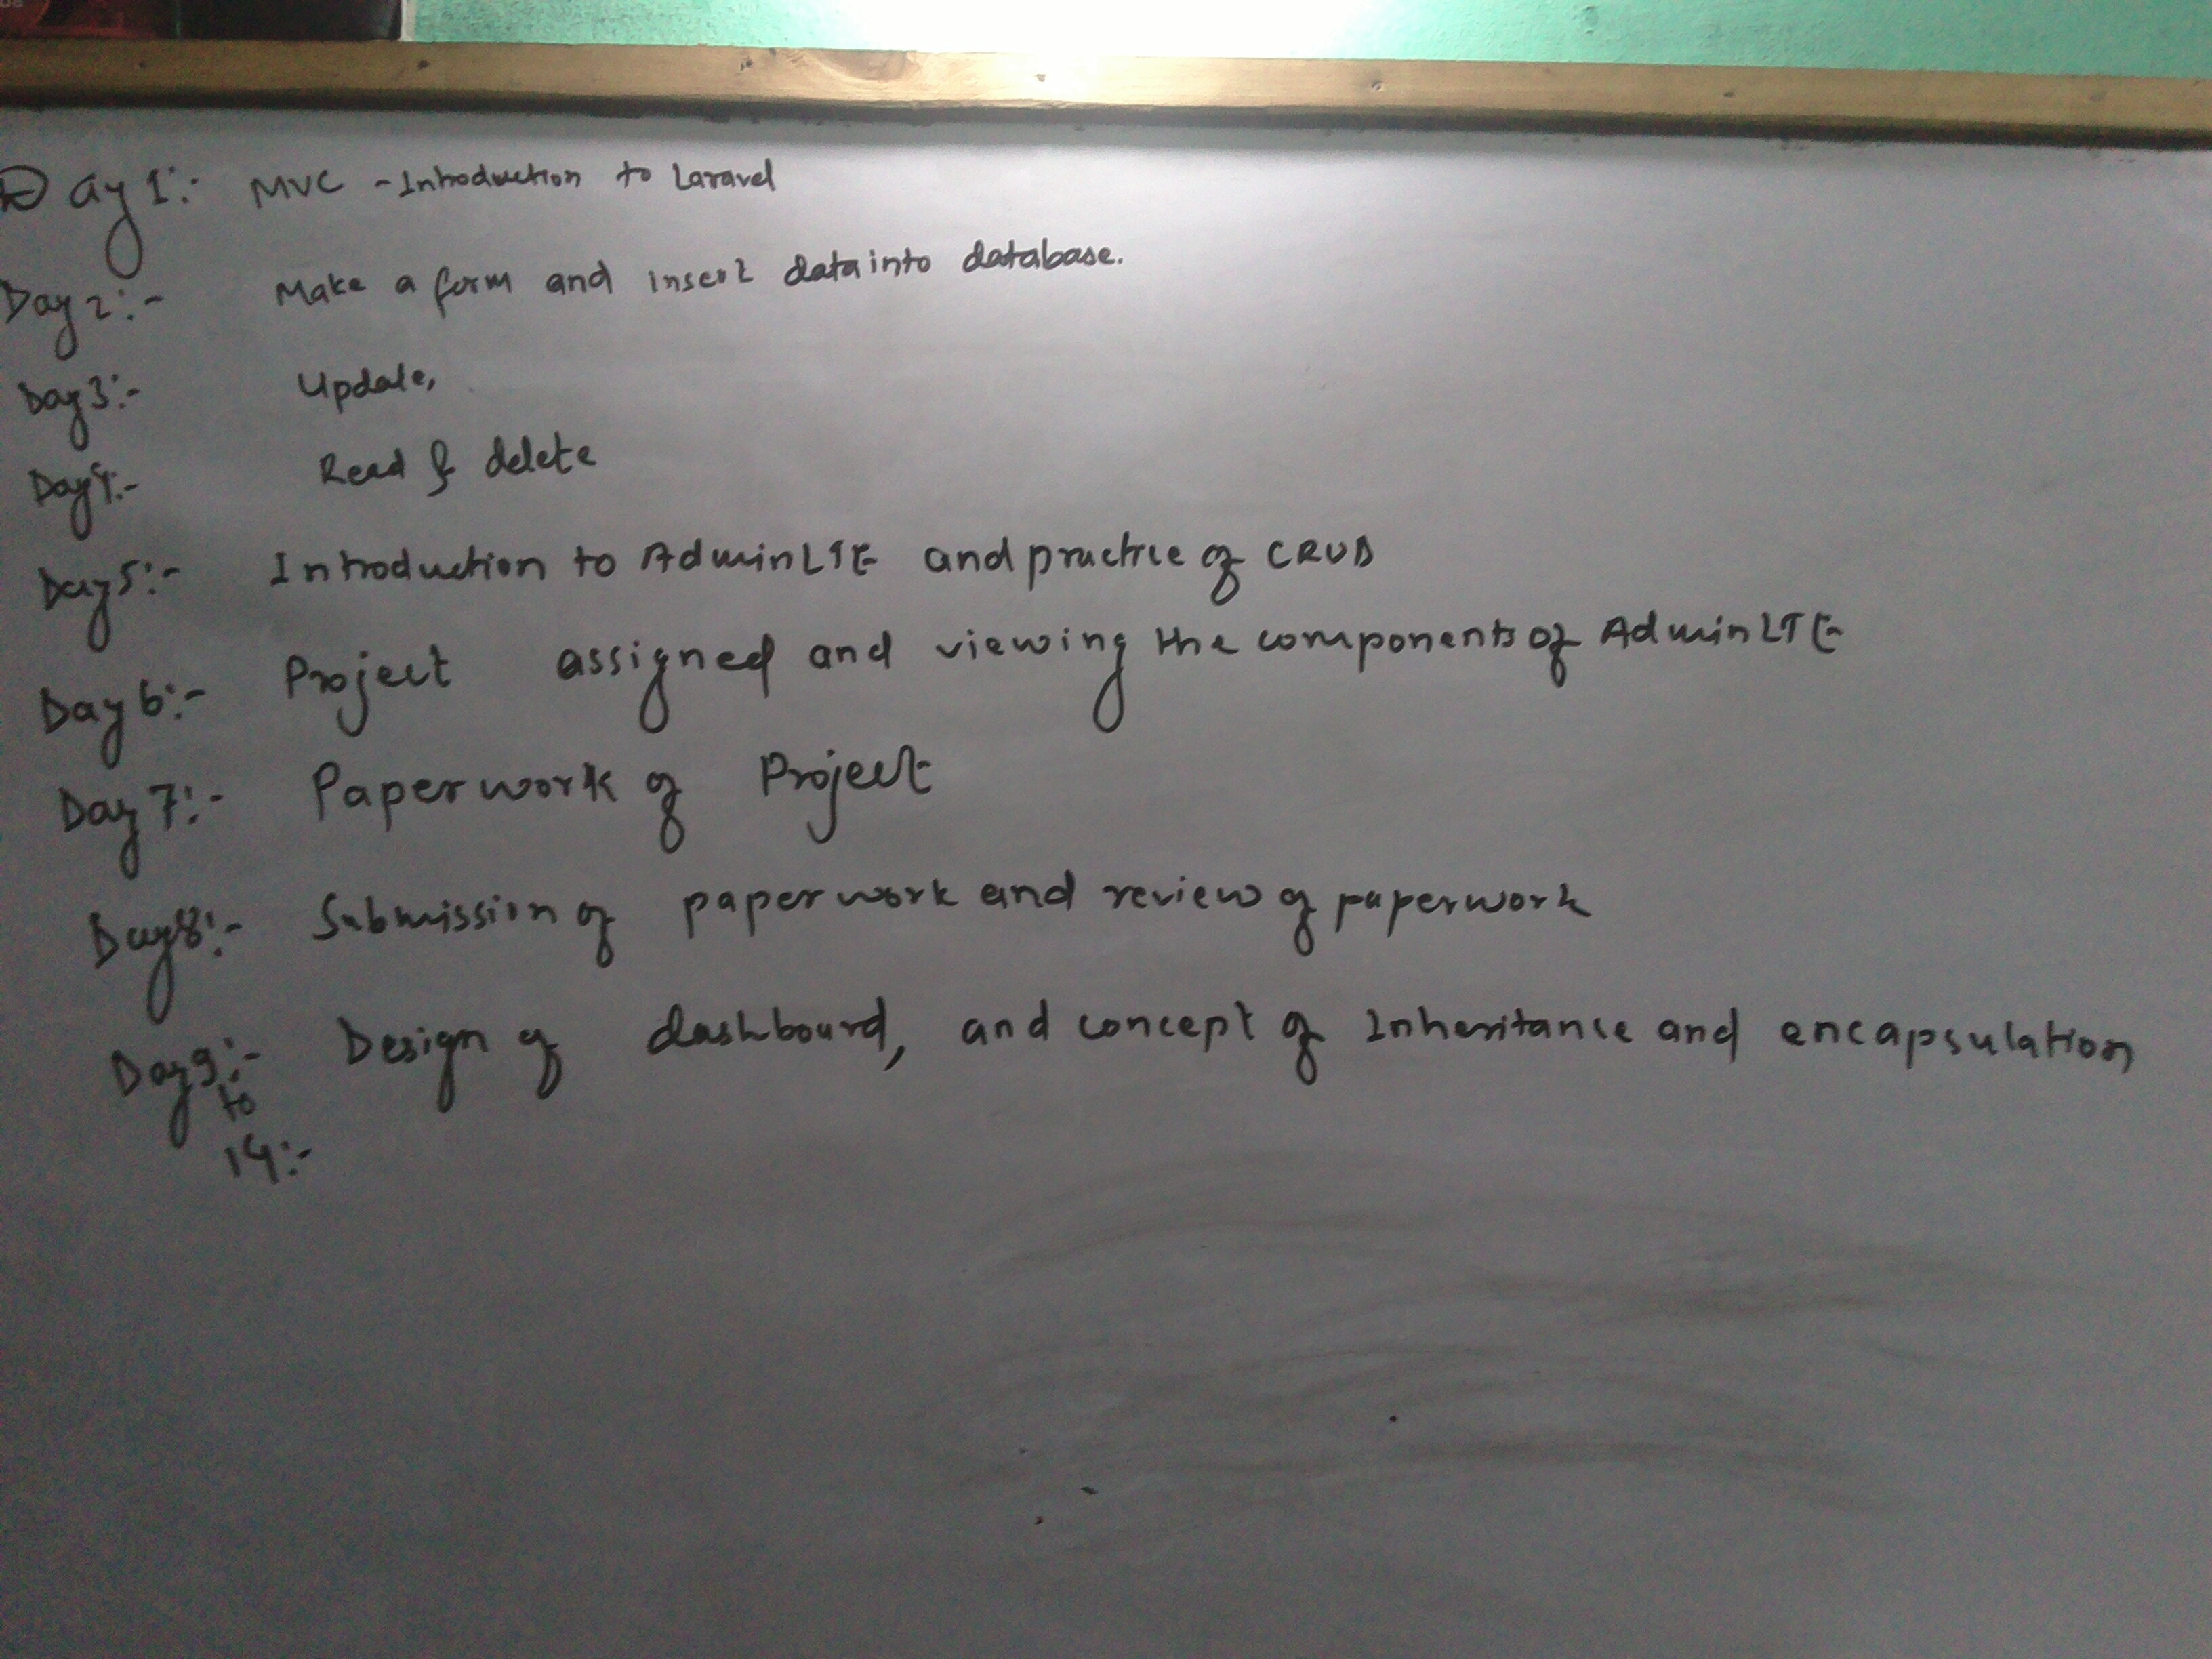 Day 1:- MVC - Introduction to Laravel
Day 2:- Make a form and insert data into database.
Day 3:- Update,
Day 4:- Read & delete
Day 5:- Introduction to AdminLTE and practice of CRUD
Day 6:- Project assigned and viewing the components of AdminLTE
Day 7:- Paperwork of Project
Day 8:- Submission of paperwork and review of paperwork
Day 9:- Design of dashboard, and concept of Inheritance and encapsulation
to
14:-